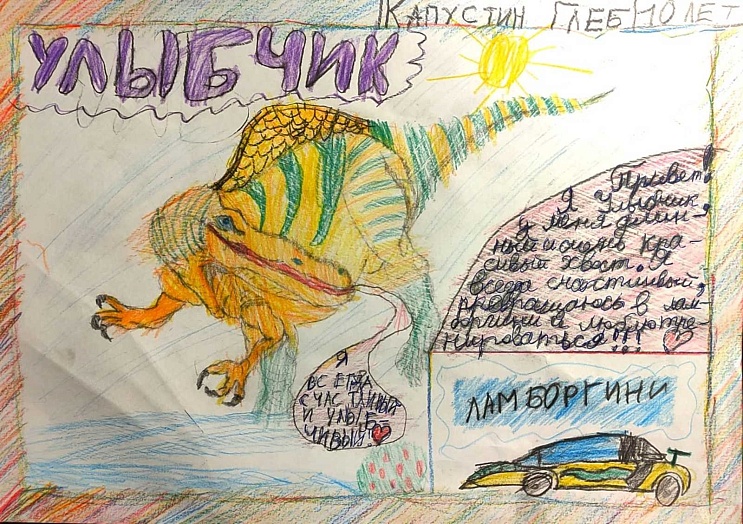 КАПУСТИН ГЛЕБ 10 ЛЕТ
УЛЫБЧИК
Привет!
Я Улыбчик
у меня длин-
ный и очень кра-
сивый хвост. Я
всегда счастливый,
превращаюсь в лам-
боргини и люблю тре-
нироваться!!!
Я
ВСЕГДА
СЧАСТЛИВЫЙ
И УЛЫБ-
ЧИВЫЙ!
ЛАМБОРГИНИ